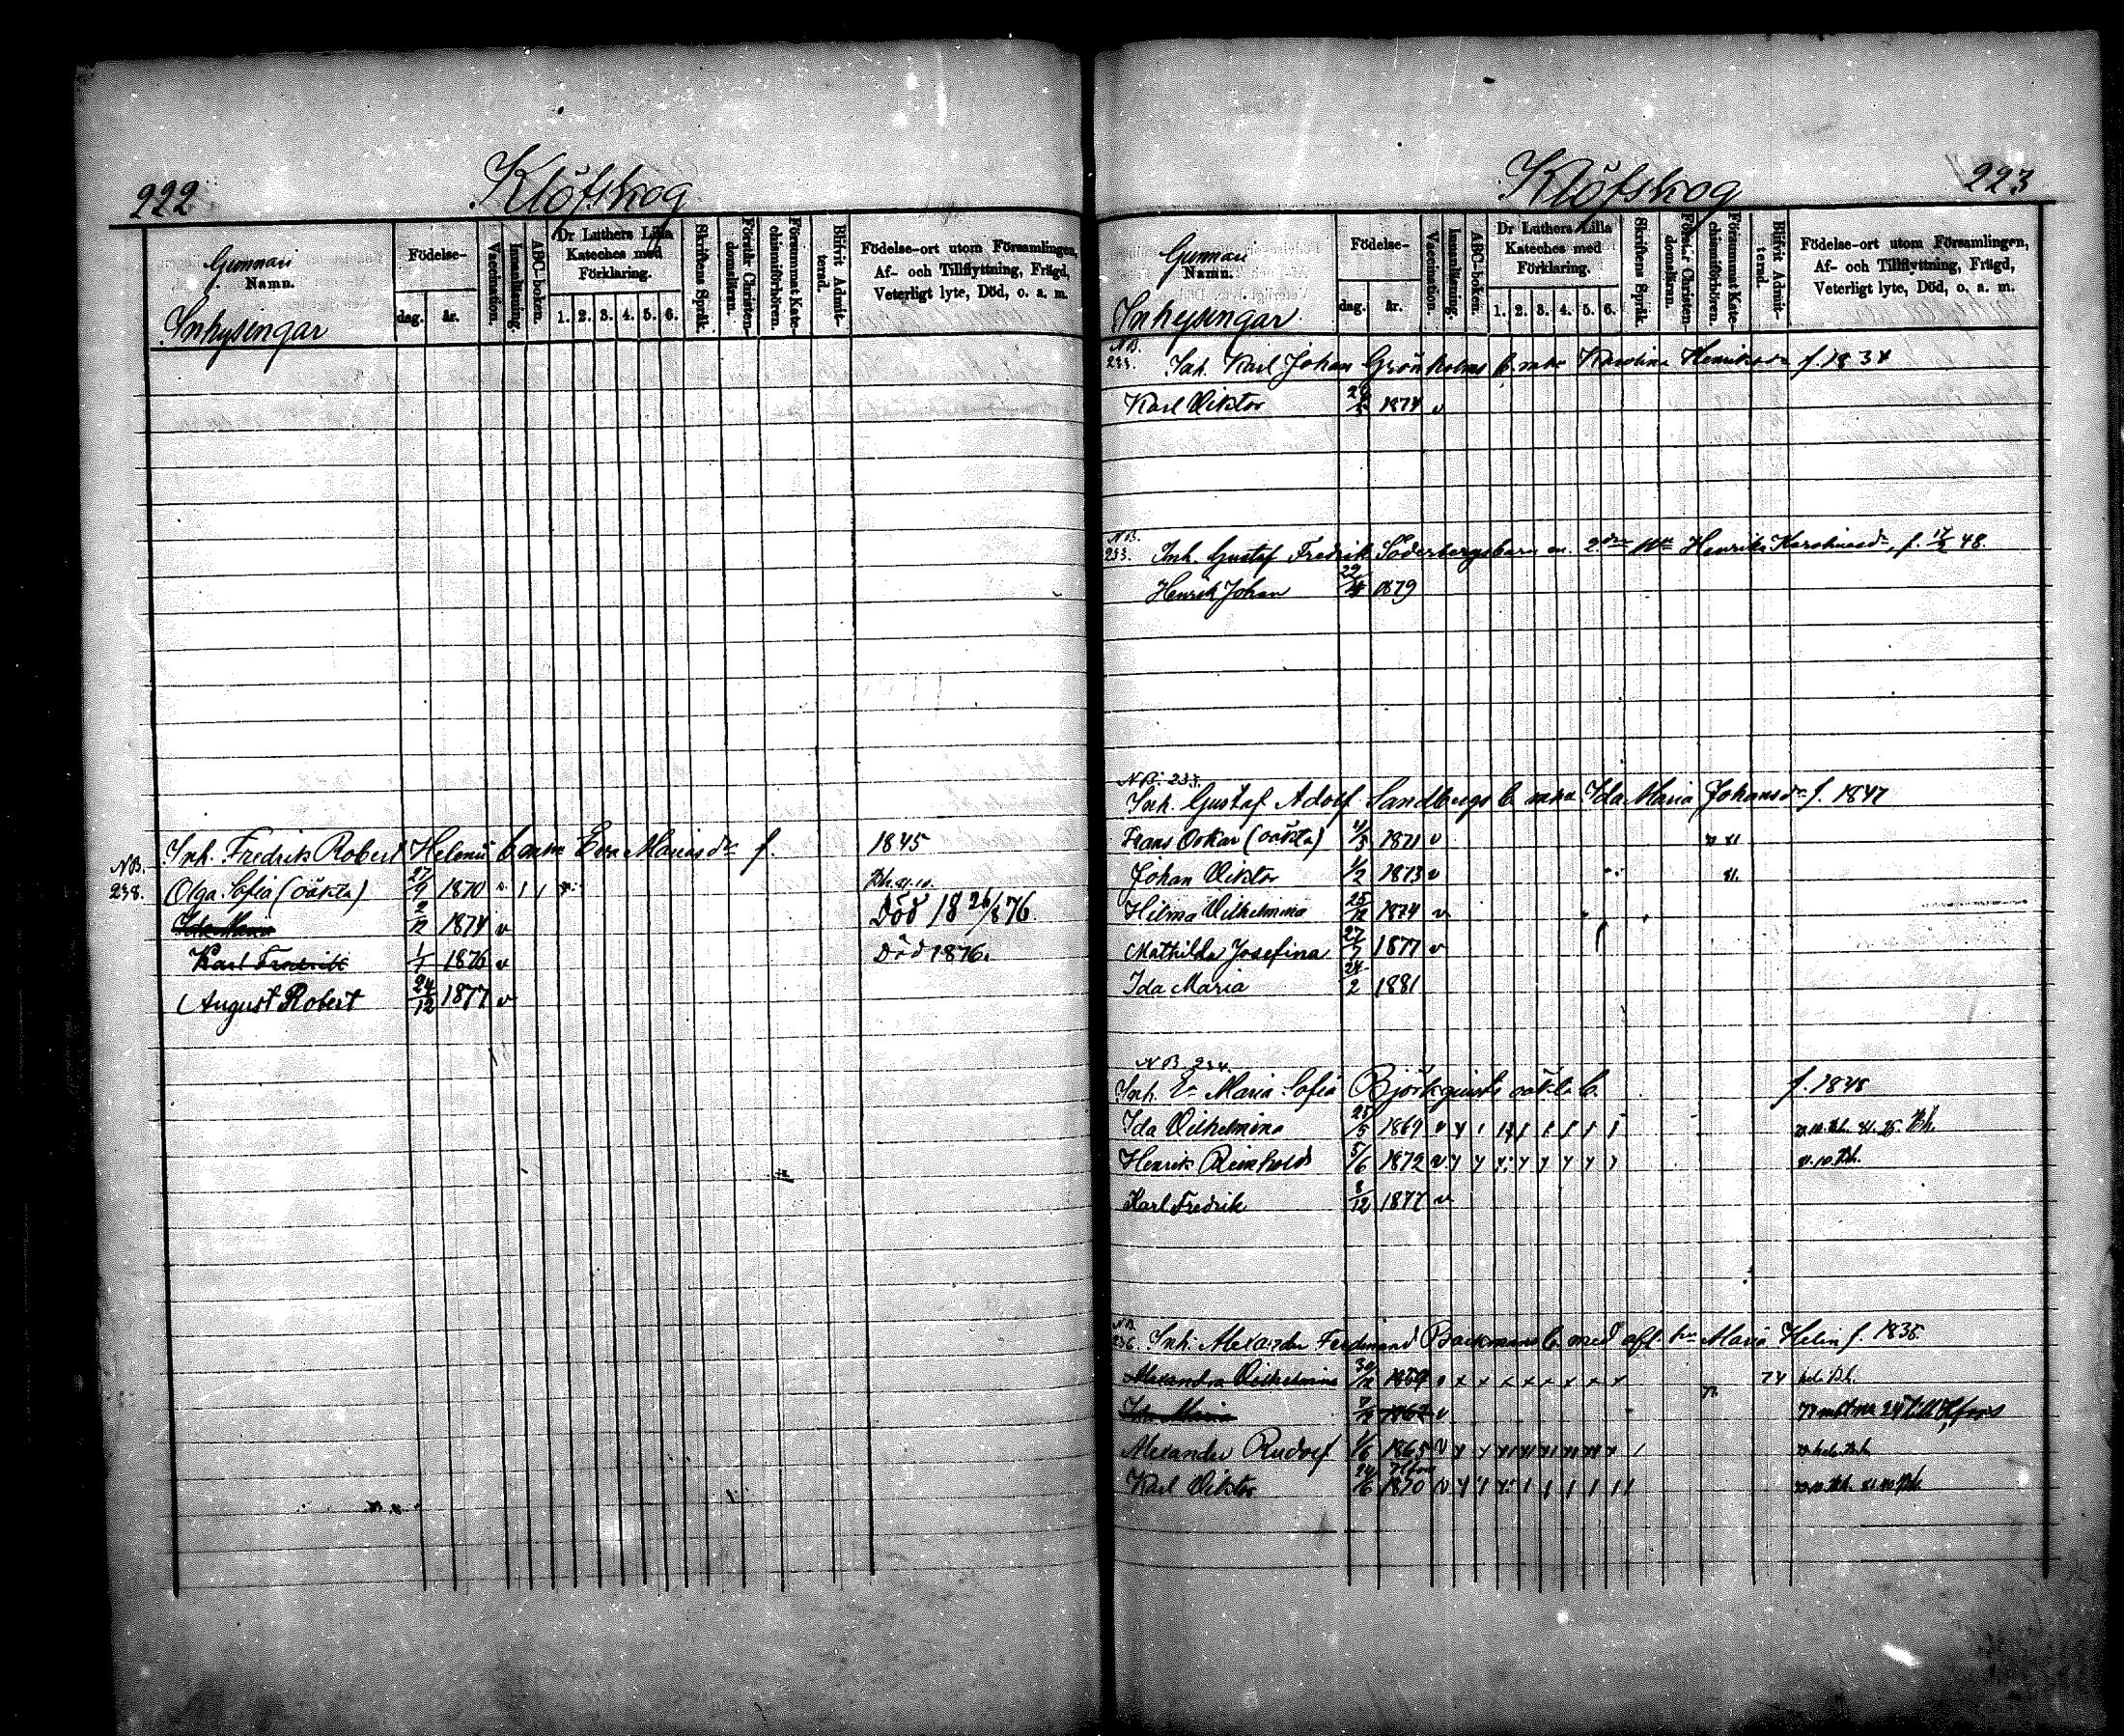 222
Klöfskog
Gunnari
Namn.
Inhysingar
Födelse-
dag.
år.
Vaccination.
Innanläsning.
ABC-boken.
Dr Luthers Lilla
Kateches med
Förklaring.
1. 2. 3. 4. 5. 6.
Skriftens Språk.
Förstår Christen-
domsläran.
Försummat Kate-
chismiförhören.
Blifvit Admit-
terad.
Födelse-ort utom Församlingen,
Af- och Tillflyttning, Frägd,
Veterligt lyte, Död, o. a. m.
Inh. Fredrik Robert Helenii b. m. h. Eva Mariasdr f. 1845
NB.
238. Olga Sofia (oäkta) 27/9 1870 v
Ida Maria 2/12 1874 v Död 18 26/8 76
Karl Fredrik 1/1 1876 v Död 1876.
August Robert 24/12 1877 v
Klöfskog
223
Gunnari
Namn.
Inhysingar
Födelse-
dag.
år.
Vaccination.
Innanläsning.
ABC-boken.
Dr Luthers Lilla
Kateches med
Förklaring.
1. 2. 3. 4. 5. 6.
Skriftens Språk.
Förstår Christen-
domsläran.
Försummat Kate-
chismiförhören.
Blifvit Admit-
terad.
Födelse-ort utom Församlingen,
Af- och Tillflyttning, Frägd,
Veterligt lyte, Död, o. a. m.
NB.
233. Inh. Karl Johan Grönholms b. Karolina Henriksdr f. 1834
Karl Viktor 1874 v
NB.
233. Inh. Gustaf Fredrik Söderbergs barn m. 2dra Henrika Karolinasdr, f. 48.
Henrik Johan 22/4 1879
NB. 233.
Inh. Gustaf Adolf Sandbergs b. Ida Maria Johansdr f. 1847
Frans Oskar (oäkta) 1871 v
Johan Viktor 1/2 1873 v
Hilma Vilhelmina 25/12 1874 v
Mathilda Josefina 27/7 1877 v
Ida Maria 24/2 1881
NB. 234.
Inh. Maria Sofia Björkqvists oäkta b. f. 1848
Ida Vilhelmina 25/5 1869 v
Henrik Reinhold 5/6 1872 v
Karl Fredrik 8/12 1877 v
NB.
236. Inh. Alexander Ferdinand Backmans b. med afl. h. Maria Helin f. 1835
Alexandra Vilhelmina 30/12 74
Ida Maria v
Alexander Rudolf 1/6 1865 v
Karl Viktor 1870 v